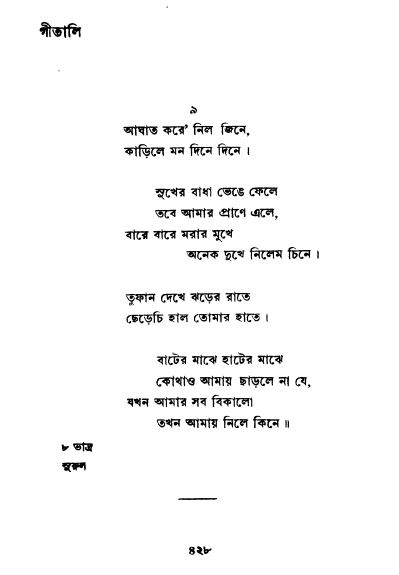 গীতালি
৯
আঘাত করে' নিল জিনে,
কাড়িলে মন দিনে দিনে।
সুখের বাধা ভেঙে ফেলে
তবে আমার প্রাণে এলে,
বারে বারে মরার মুখে
অনেক দুখে নিলেম চিনে।
তুফান দেখে ঝড়ের রাতে
ছেড়েচি হাল তোমার হাতে।
বাটের মাঝে হাটের মাঝে
কোথাও আমায় ছাড়লে না যে,
যখন আমার সব বিকালো
তখন আমায় নিলে কিনে॥
৮ ভাদ্র
সুরুল
৪২৮